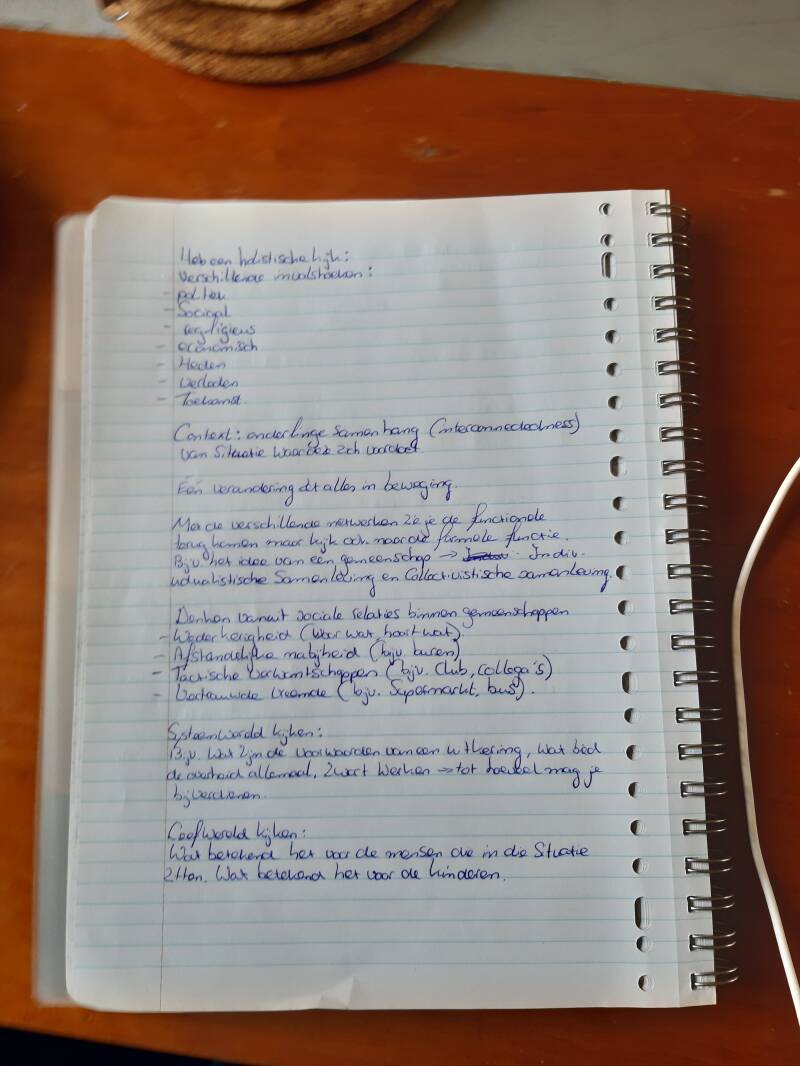 Heb een holistische kijk:
Verschillende invalshoeken:
- politiek
- Sociaal
- regligieus
- economisch
- Heden
- Verleden
- Toekomst.
Context: onderlinge Samenhang (interconnectedness)
van Situatie waar zich voordoet.
Eén verandering zet alles in beweging.
Met de verschillende netwerken zie je de functionele
terug komen maar kijk ook naar de formele functie.
Bijv. het idee van een gemeenschap → Indiv.
udualistische Samenleving en Collectivistische samenleving.
Denken vanuit sociale relaties binnen gemeenschappen
- Wederkerigheid (Voor wat, hoort wat).
- Afstandelijke nabijheid (bijv. buren)
- Tactische verwantschappen (bijv. Club, collega's)
- Vertrouwde vreemde (bijv. Supermarkt, bus).
Systeemwereld kijken:
Bijv. Wat zijn de voorwaarden van een uitkering, wat bied
de overheid allemaal, Zwart Werken → tot hoeveel mag je
bijverdienen.
Leefwereld kijken:
Wat betekend het voor de mensen die in die Situatie
zitten. Wat betekend het voor de kinderen.